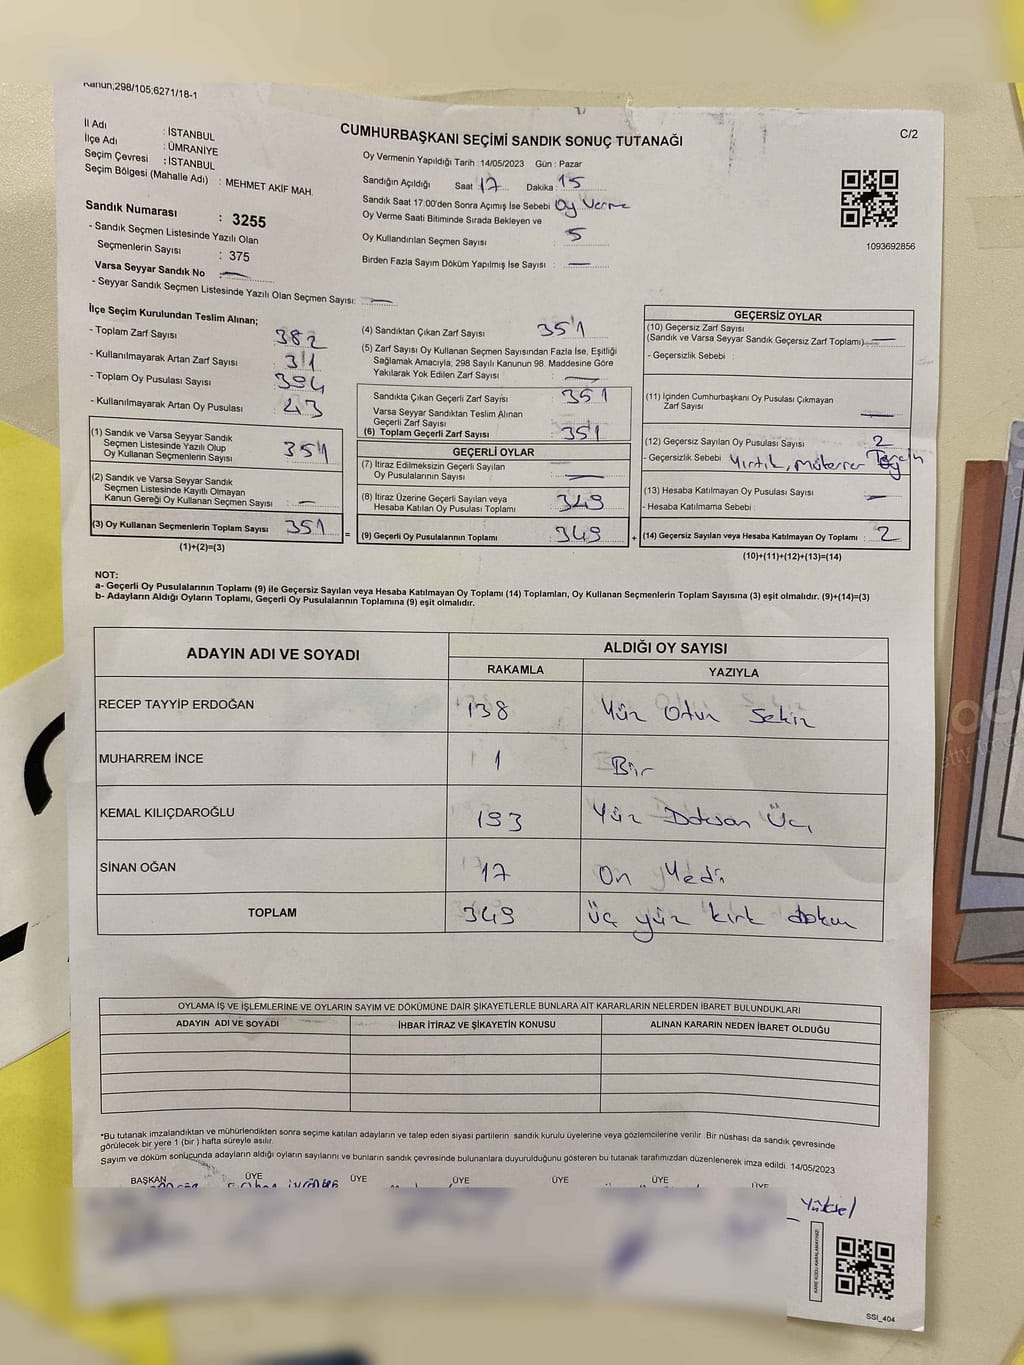 Kanun;298/105;6271/18-1
C/2
CUMHURBAŞKANI SEÇİMİ SANDIK SONUÇ TUTANAĞI
İl Adı : İSTANBUL
İlçe Adı : ÜMRANİYE
Seçim Çevresi : İSTANBUL
Seçim Bölgesi (Mahalle Adı) : MEHMET AKİF MAH.
Sandık Numarası : 3255
- Sandık Seçmen Listesinde Yazılı Olan
Seçmenlerin Sayısı : 375
Varsa Seyyar Sandık No : —
- Seyyar Sandık Seçmen Listesinde Yazılı Olan Seçmen Sayısı: —
Oy Vermenin Yapıldığı Tarih : 14/05/2023 Gün : Pazar
Sandığın Açıldığı Saat 17 Dakika : 15
Sandık Saat 17:00'den Sonra Açımış İse Sebebi Oy Verme
Oy Verme Saati Bitiminde Sırada Bekleyen ve
Oy Kullandırılan Seçmen Sayısı : 5
Birden Fazla Sayım Döküm Yapılmış İse Sayısı : —
1093692856
İlçe Seçim Kurulundan Teslim Alınan;
- Toplam Zarf Sayısı : 382
- Kullanılmayarak Artan Zarf Sayısı : 31
- Toplam Oy Pusulası Sayısı : 394
- Kullanılmayarak Artan Oy Pusulası : 43
(1) Sandık ve Varsa Seyyar Sandık
Seçmen Listesinde Yazılı Olup
Oy Kullanan Seçmenlerin Sayısı : 351
(2) Sandık ve Varsa Seyyar Sandık
Seçmen Listesinde Kayıtlı Olmayan
Kanun Gereği Oy Kullanan Seçmen Sayısı : —
(3) Oy Kullanan Seçmenlerin Toplam Sayısı : 351 =
(1)+(2)=(3)
(4) Sandıktan Çıkan Zarf Sayısı : 351
(5) Zarf Sayısı Oy Kullanan Seçmen Sayısından Fazla İse, Eşitliği
Sağlamak Amacıyla, 298 Sayılı Kanunun 98. Maddesine Göre
Yakılarak Yok Edilen Zarf Sayısı : —
Sandıkta Çıkan Geçerli Zarf Sayısı : 351
Varsa Seyyar Sandıktan Teslim Alınan
Geçerli Zarf Sayısı :
(6) Toplam Geçerli Zarf Sayısı : 351
GEÇERLİ OYLAR
(7) İtiraz Edilmeksizin Geçerli Sayılan
Oy Pusulalarının Sayısı : —
(8) İtiraz Üzerine Geçerli Sayılan veya
Hesaba Katılan Oy Pusulası Toplamı : 349
(9) Geçerli Oy Pusulalarının Toplamı : 349 +
GEÇERSİZ OYLAR
(10) Geçersiz Zarf Sayısı
(Sandık ve Varsa Seyyar Sandık Geçersiz Zarf Toplamı) : —
- Geçersizlik Sebebi :
(11) İçinden Cumhurbaşkanı Oy Pusulası Çıkmayan
Zarf Sayısı : —
(12) Geçersiz Sayılan Oy Pusulası Sayısı : 2
- Geçersizlik Sebebi Yırtık, mükerrer Tercih
(13) Hesaba Katılmayan Oy Pusulası Sayısı : —
- Hesaba Katılmama Sebebi :
(14) Geçersiz Sayılan veya Hesaba Katılmayan Oy Toplamı : 2
(10)+(11)+(12)+(13)=(14)
NOT:
a- Geçerli Oy Pusulalarının Toplamı (9) ile Geçersiz Sayılan veya Hesaba Katılmayan Oy Toplamı (14) Toplamları, Oy Kullanan Seçmenlerin Toplam Sayısına (3) eşit olmalıdır. (9)+(14)=(3)
b- Adayların Aldığı Oyların Toplamı, Geçerli Oy Pusulalarının Toplamına (9) eşit olmalıdır.
ADAYIN ADI VE SOYADI ALDIĞI OY SAYISI
RAKAMLA YAZIYLA
RECEP TAYYİP ERDOĞAN 138 Yüz Otuz Sekiz
MUHARREM İNCE 1 Bir
KEMAL KILIÇDAROĞLU 193 Yüz Doksan Üç
SİNAN OĞAN 17 On Yedi
TOPLAM 349 üç yüz kırk dokuz
OYLAMA İŞ VE İŞLEMLERİNE VE OYLARIN SAYIM VE DÖKÜMÜNE DAİR ŞİKAYETLERLE BUNLARA AİT KARARLARIN NELERDEN İBARET BULUNDUKLARI
ADAYIN ADI VE SOYADI İHBAR İTİRAZ VE ŞİKAYETİN KONUSU ALINAN KARARIN NEDEN İBARET OLDUĞU
*Bu tutanak imzalandıktan ve mühürlendikten sonra seçime katılan adayların ve talep eden siyasi partilerin sandık kurulu üyelerine veya gözlemcilerine verilir .Bir nüshası da sandık çevresinde
görülecek bir yere 1 (bir ) hafta süreyle asılır.
Sayım ve döküm sonucunda adayların aldığı oyların sayılarını ve bunların sandık çevresinde bulunanlara duyurulduğunu gösteren bu tutanak tarafımızdan düzenlenerek imza edildi. 14/05/2023
BAŞKAN ÜYE ÜYE ÜYE ÜYE ÜYE ÜYE
Yüksel
SSI_404